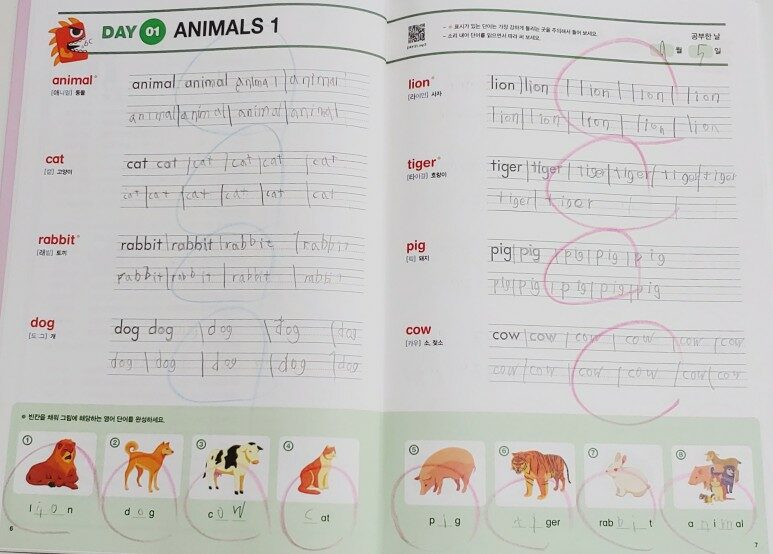 DAY 01 ANIMALS 1
animal*
[애니멀] 동물
animal animal animal | animal
animal | animal | animal | animal
cat
[캩] 고양이
cat cat | cat | cat | cat | cat
cat | cat | cat | cat | cat | cat
rabbit*
[래빝] 토끼
rabbit | rabbit | rabbit | rabbit
rabbit | rabbit | rabbit | rabbit
dog
[도 그] 개
dog dog | dog | dog | dog
dog | dog | dog | dog | dog
빈칸을 채워 그림에 해당하는 영어 단어를 완성하세요.
① ② ③ ④
lion
dog
cow
cat
6
- * 표시가 있는 단어는 가장 강하게 들리는 곳을 주의해서 들어 보세요.
- 소리 내어 단어를 읽으면서 따라 써 보세요.
공부한 날
월 5 일
lion*
[라이언] 사자
lion | lion | lion | lion | lion
lion | lion | lion | lion | lion
tiger*
[타이거] 호랑이
tiger | tiger | tiger | tiger | tiger | tiger
tiger | tiger
pig
돼지
pig | pig | pig | pig | pig
pig | pig | pig | pig | pig
cow
[카우] 소, 젖소
cow | cow | cow | cow | cow | cow
cow | cow | cow | cow | cow | cow
⑤ ⑥ ⑦ ⑧
pig
tiger
rabbit
animal
7